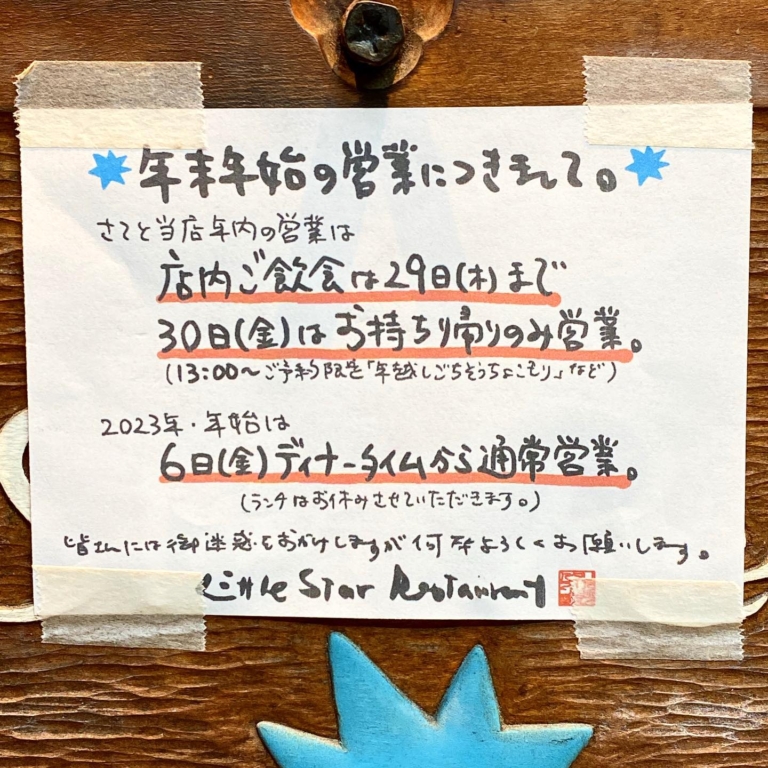 年末年始の営業につきまして。
さてと当店年内の営業は
店内ご飲食は29日(木)まで
30日(金)はお持ち帰りのみ営業。
(13:00〜ご予約限定「年越しごちそうちょこもり」など)
2023年・年始は
6日(金)ディナータイムから通常営業。
(ランチはお休みさせていただきます。)
皆さんには御迷惑をおかけしますが何卒よろしくお願いします。
Little Star Restaurant